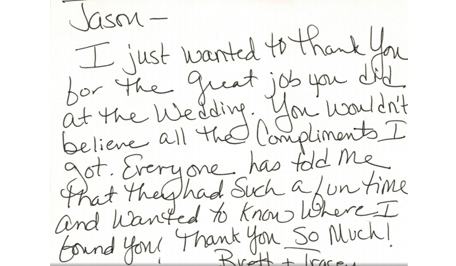 Jason —
I just wanted to thank You
for the great job you did
at the Wedding. You wouldn't
believe all the Compliments I
got. Everyone has told Me
that they had Such a fun time
and Wanted to Know Where I
found You! Thank You So Much!
Brett + Tracey